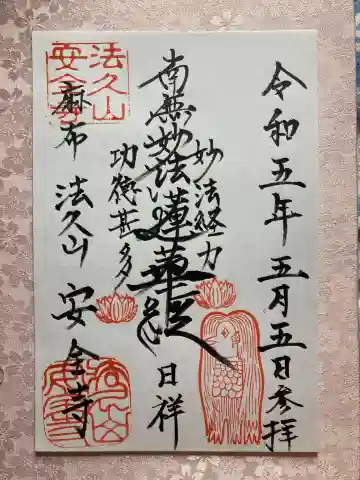 令和五年 五月五日参拝
妙法経力
南無妙法蓮華経
日祥
功徳甚多
麻布 法久山 安全寺
法久山
安全寺